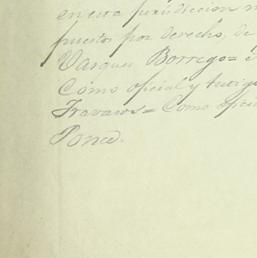 en esta jurisdiccion
puestos por derecho, de
Vasquez Borrego =
Cómo oficial y testigo
Travacos = Como oficial
Ponce.